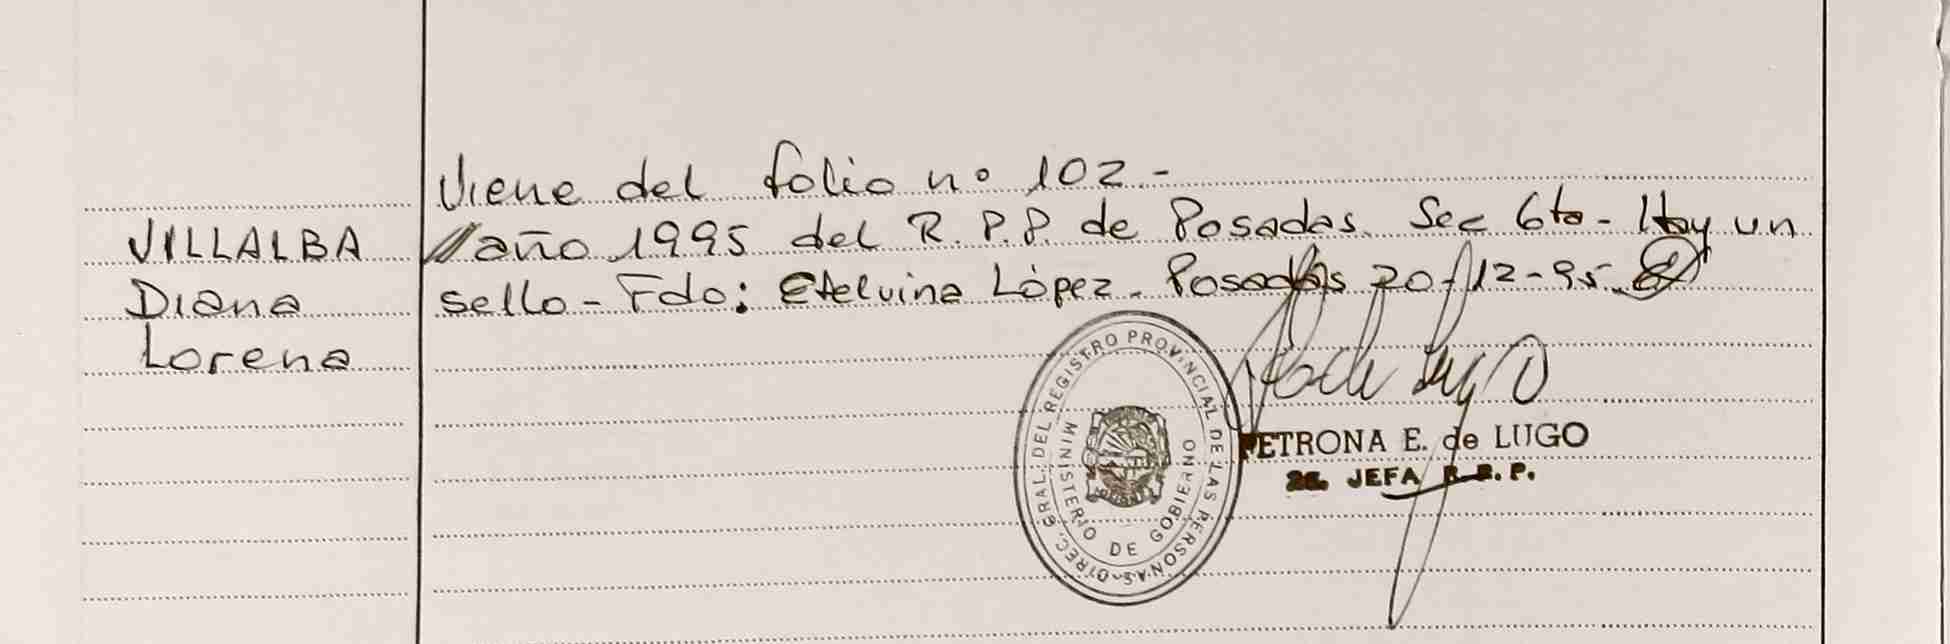 Viene del folio nº 102.-
VILLALBA
//año 1995 del R.P.P. de Posadas. Sec 6ta- Hay un
Diana
sello- Fdo: Etelvina López. Posadas 20-12-95.
Lorena
DIREC. GRAL. DEL REGISTRO PROVINCIAL DE LAS PERSONAS
MINISTERIO DE GOBIERNO
PETRONA E. de LUGO
JEFA R.P.P.